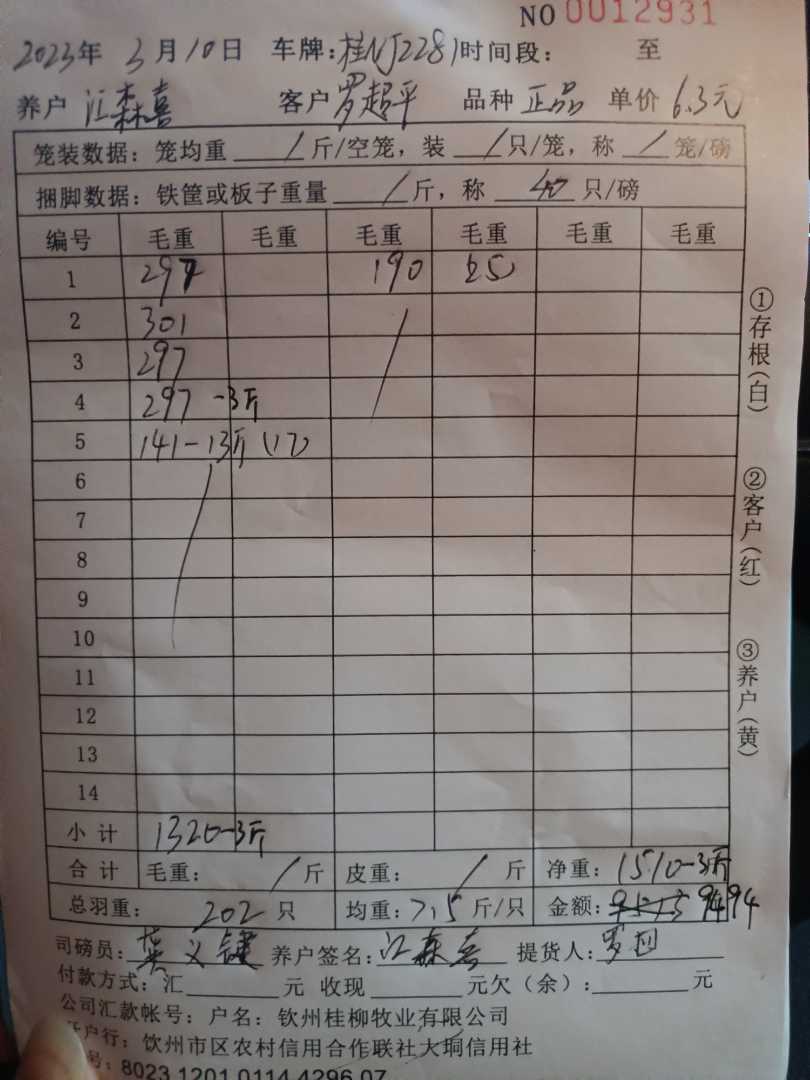 NO 0012931
2023年 3月10日 车牌:桂NJ2281时间段: 至
养户 江森喜 客户 罗超平 品种 正品 单价 6.3元
笼装数据:笼均重 / 斤/空笼,装 / 只/笼,称 / 笼/磅
捆脚数据:铁筐或板子重量 / 斤,称 40 只/磅
编号 毛重 毛重 毛重 毛重 毛重 毛重
1 297 190 25
2 301
3 297
4 297 -3斤
5 141-13斤 (17)
6
7
8
9
10
11
12
13
14
小计 1320-3斤
合计 毛重: / 斤 皮重: / 斤 净重: 1510-3斤
总羽重: 202 只 均重: 7.5 斤/只 金额: 9494
司磅员: 义健 养户签名: 江森喜 提货人: 罗
付款方式:汇 元 收现 元欠(余): 元
公司汇款帐号:户名:钦州桂柳牧业有限公司
开户行:钦州市区农村信用合作联社大垌信用社
号: 8023 1201 0114 4296 07
①存根(白)
②客户(红)
③养户(黄)